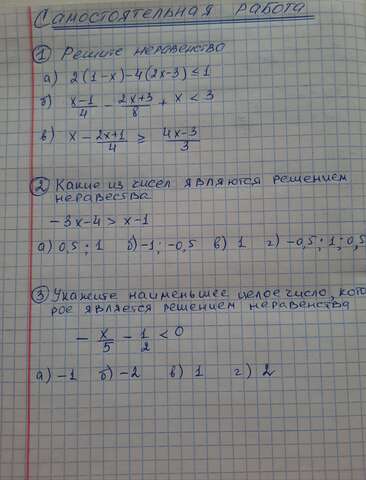 Самостоятельная работа
① Решите неравенства
а) 2(1-x)-4(2x-3)<1
б) (x-1)/4 - (2x+3)/8 + x < 3
в) x - (2x+1)/4 ≥ (4x-3)/3
② Какие из чисел являются решением
неравества
-3x-4 > x-1
а) 0,5; 1 б) -1; -0,5 в) 1 г) -0,5; 1; 0,5
③ Укажите наименьшее целое число, кото
рое является решением неравенства
- x/5 - 1/2 < 0
а) -1 б) -2 в) 1 г) 2